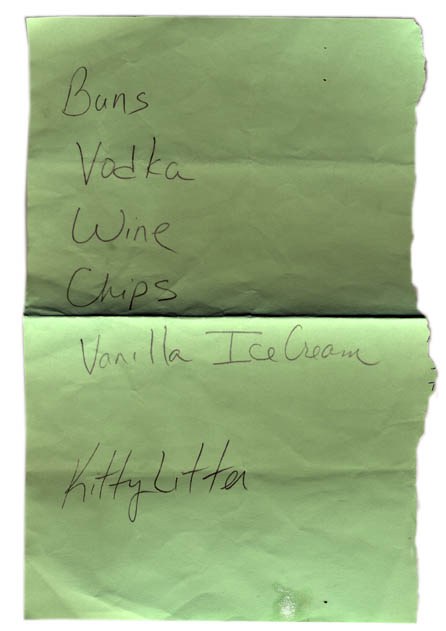 Buns
Vodka
Wine
Chips
Vanilla Ice Cream
Kitty Litter